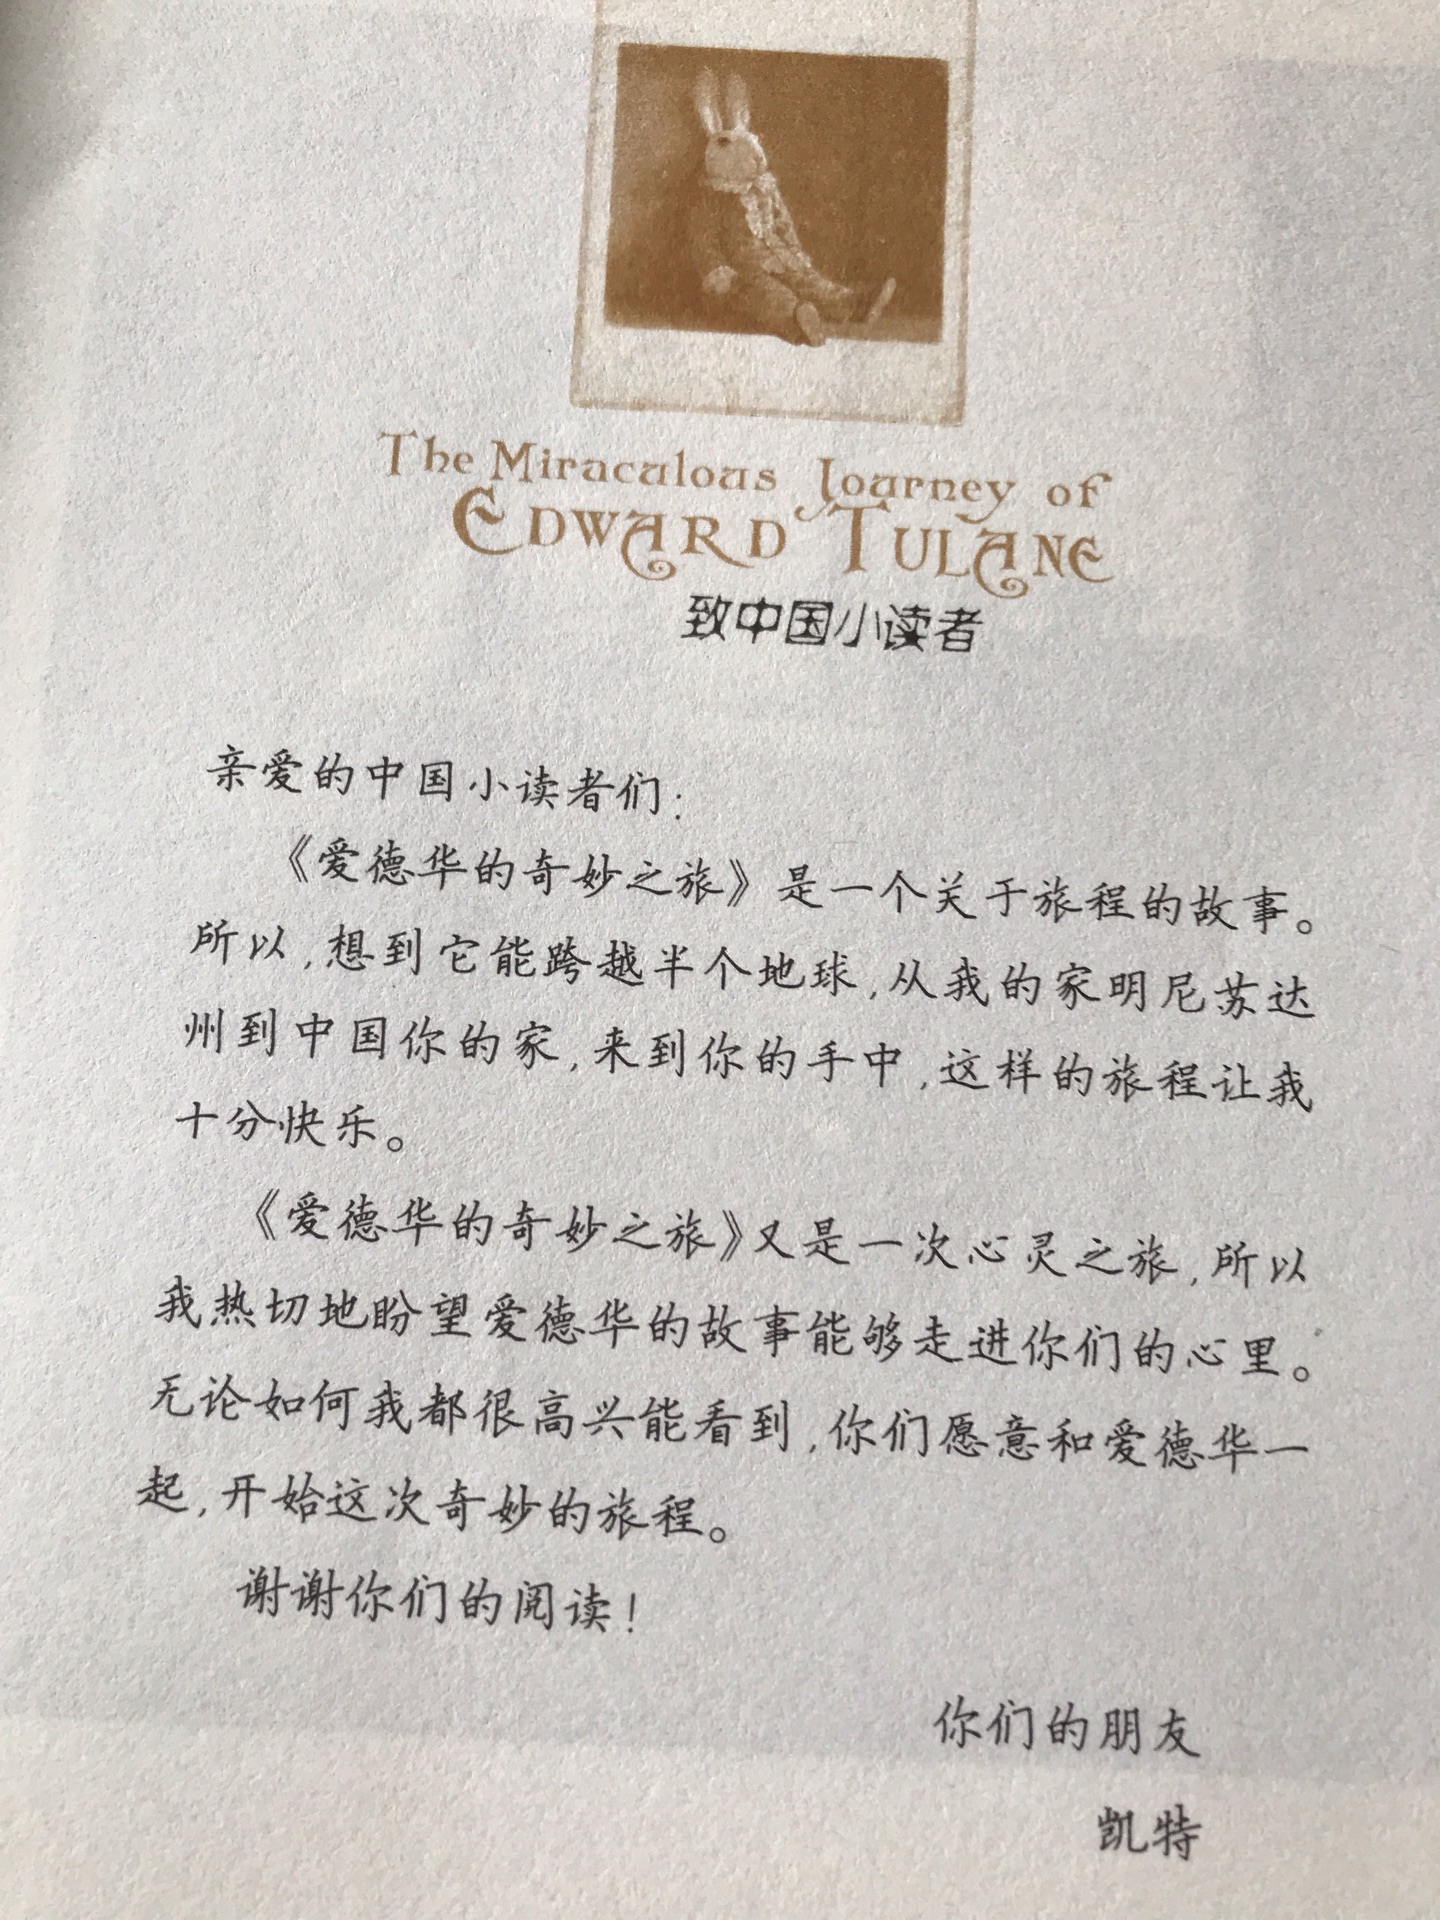 The Miraculous Journey of
EDWARD TULANE
致中国小读者
亲爱的中国小读者们：
《爱德华的奇妙之旅》是一个关于旅程的故事。
所以，想到它能跨越半个地球，从我的家明尼苏达
州到中国你的家，来到你的手中，这样的旅程让我
十分快乐。
《爱德华的奇妙之旅》又是一次心灵之旅，所以
我热切地盼望爱德华的故事能够走进你们的心里。
无论如何我都很高兴能看到，你们愿意和爱德华一
起，开始这次奇妙的旅程。
谢谢你们的阅读！
你们的朋友
凯特